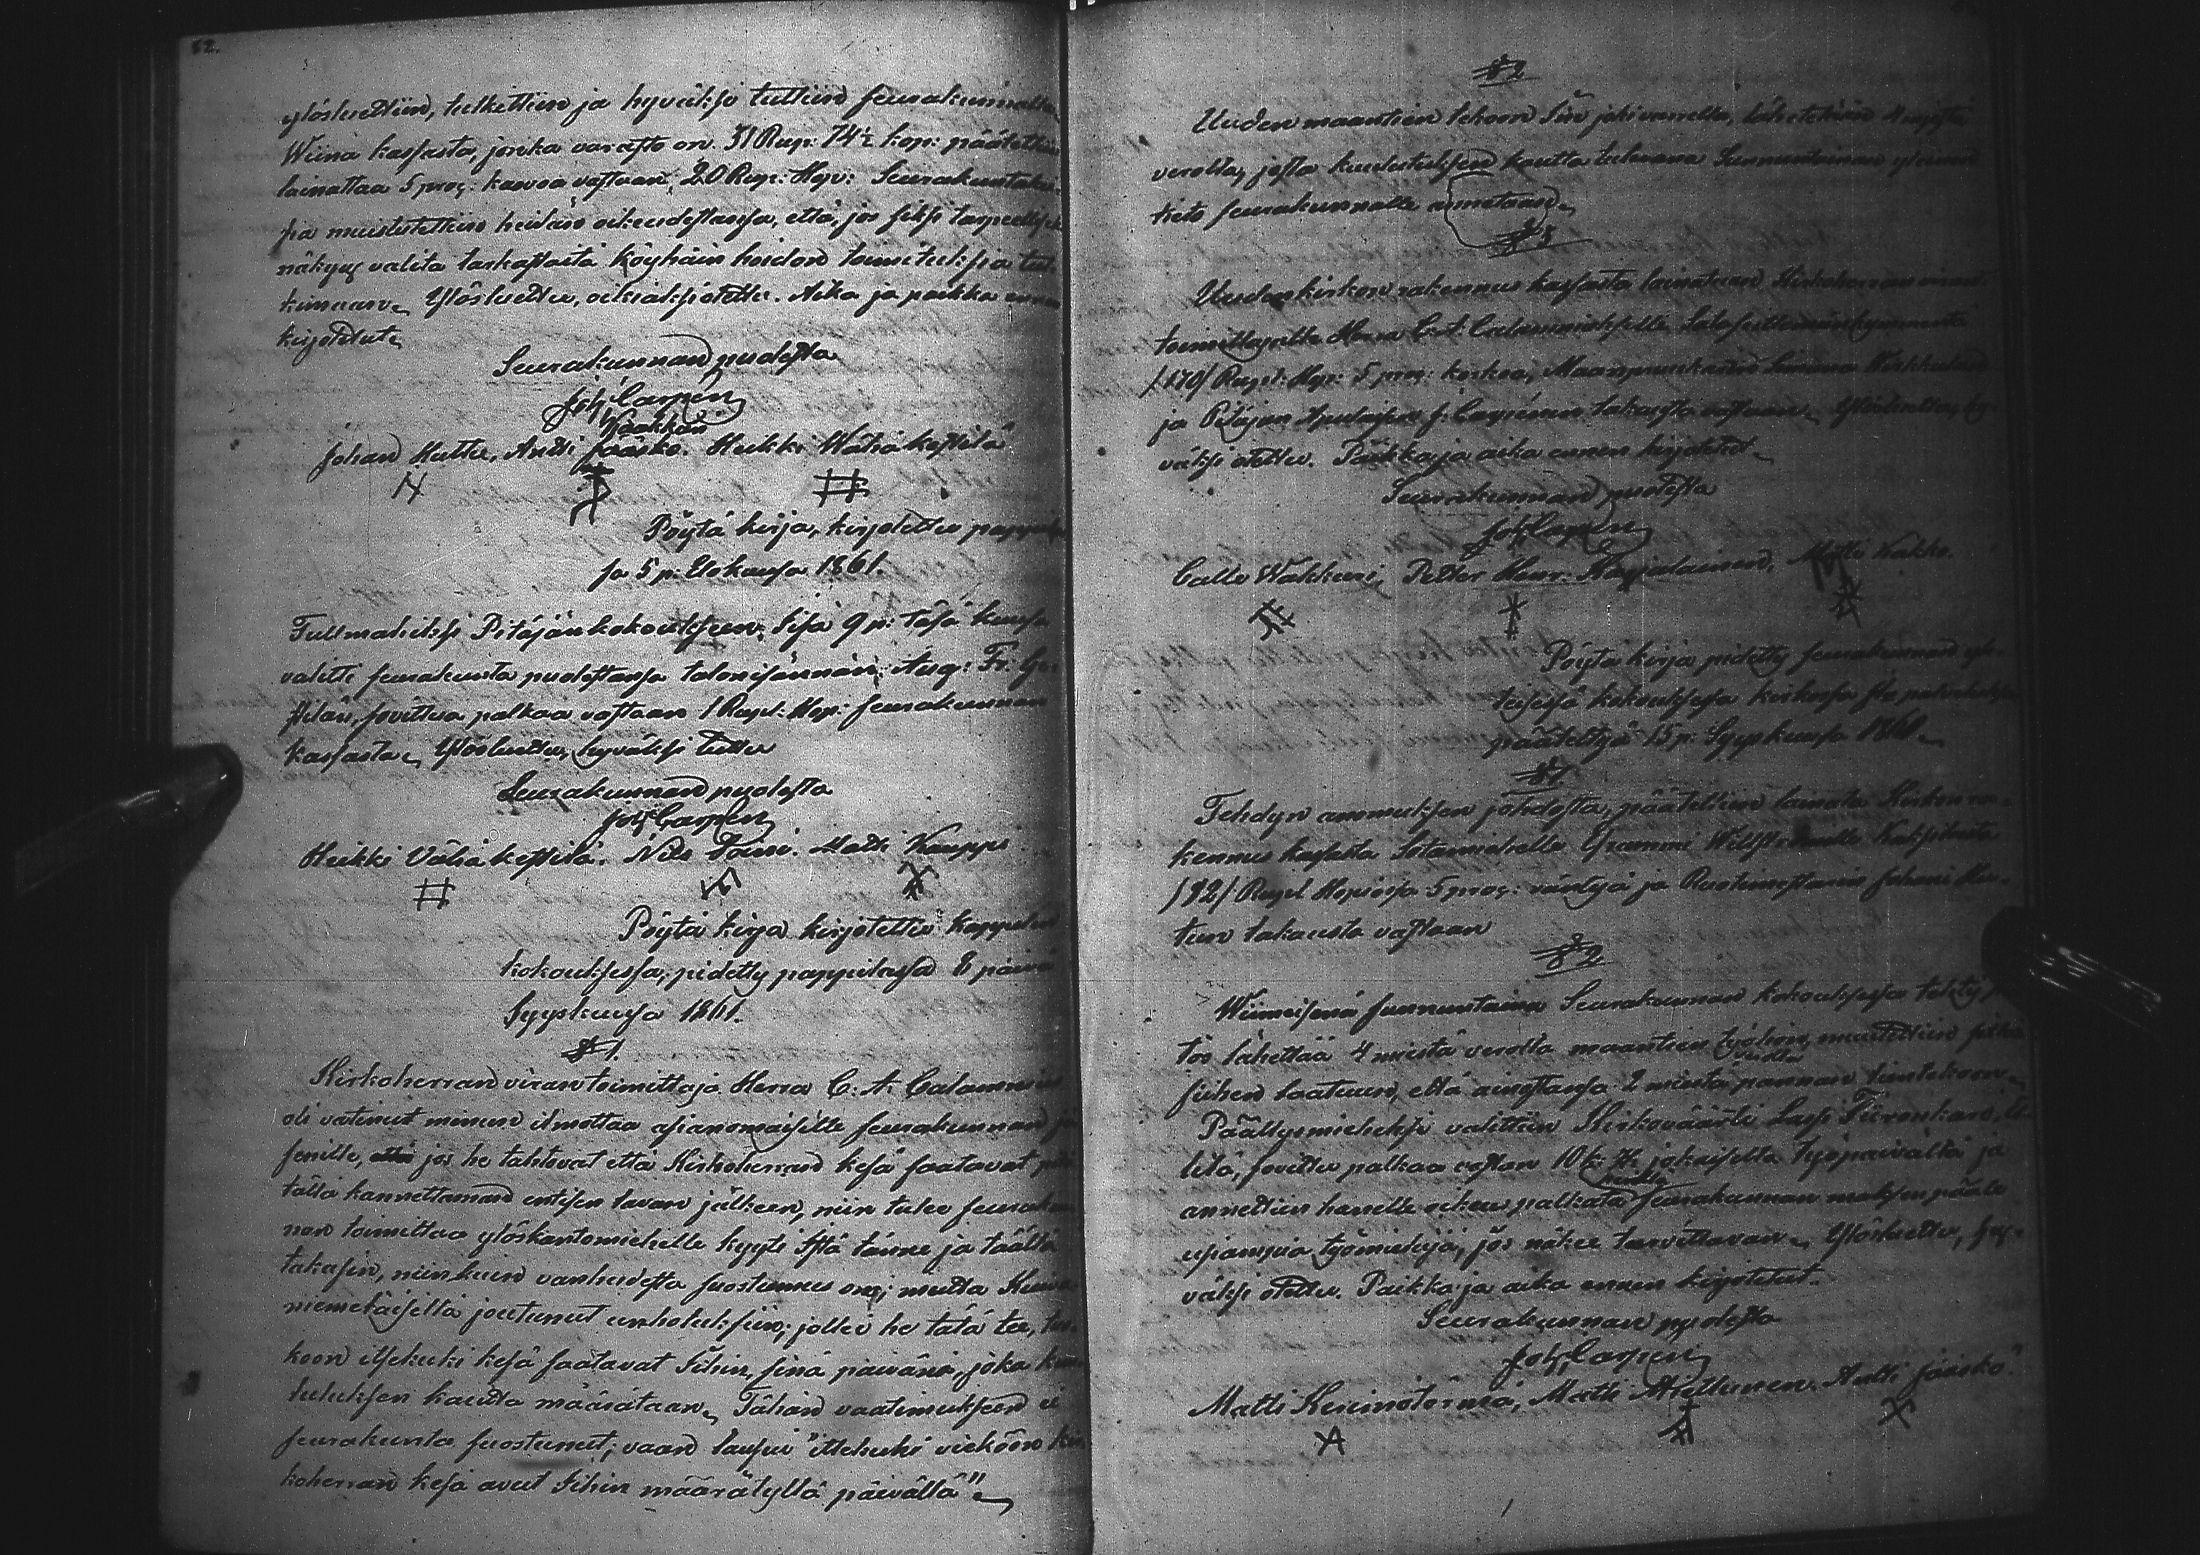 52.
ylösluettiin, tutkittiin ja hyväksi tuttiin seurakunnalta
Wiina kassasta, jonka varasto on 51 Rup: 74½ kop: päätettiin
lainattaa 5 pros: kasvoa vastaan, 20 Rup: Hop: Seurakunta
sia muistutettiin heidän oikeudestansa, että, jos siksi tarpeellisek
näkyys valita tarkastaita köyhäin hoidon toimituksia tut-
kimaan. Ylösluettu, oikiaksi otettu. Aika ja paikka ennen
kirjotetut.
Seurakunnan puolesta
Joh Carpén
Kaakkuri
Johan Huttu, Antti Jääskö. Heikki Wäliä kestilä
Pöytä kirja, kirjotettu pappilas
sa 5 p. Elokuusa 1861.
Fullmahiksi Pitäjänkokoukseen, Iisä 9 p: täsä kuusa
valitti seurakunta puolestansa talonisännän Aug: Fr:
stilän, sovittua palkaa vastaan 1 Rupl: Hop: seurakunnan
kassasta. Ylösluettu, hyväksi tuttu
Seurakunnan puolesta
Joh Carpén
Heikki Väliäkestilä. Nils Tossi. Matti Kauppi
Pöytä kirja kirjotettu kappelin
kokouksessa, pidetty pappilassa 8 päivä
Syyskuusa 1861.
§ 1.
Kirkoherran viran toimittaja Herra C. A. Calamnius
oli vatinut minun ilmottaa asianomaisille seurakunnan jä
senille, että jos he tahtovat että Kirkoherran kesä saatavat pitä
tällä kannettaman entisen tavan jälkeen, niin tulee seurakun
nan toimittaa ylöskantomiehelle kyyti Iistä tänne ja täältä
takasin, niinkuin vanhudesta suostumus on; mutta Kuiva
niemeläisiltä joutunut unhotuksiin; jollei he tätä tee, tu-
koon itsekuki kesä saatavat Iihin, sinä päivänä, joka kuu
lutuksen kautta määrätaan. Tähän vaatimukseen ei
seurakunta suostunut; vaan lausui "ittekuki vieköön kir
koherran kesä avut Iihin määrätyllä päivällä".
§ 2
Uuden maantien tekoon Iin joki varrella, lähetetään 4 miestä
verolta, josta kuulutuksen kautta tulevana Sunnuntaina yleinen
tieto seurakunnalle annetaan.
§ 3
Uudenkirkon rakennus kassasta lainataan Kirkoherran viran
toimittajalle Herra C. A. Calamniukselle Sataseittemänkymmentä
/170/ Rupl: Hop: 5 pros: korkoa, Maanpruukarin
ja Pitäjän Apulaisen J. Carpénin takausta vastaan. Ylösluettu, hy-
väksi otettu. Paikka ja aika ennen kirjotetut.
Seurakunnan puolesta
Joh Carpén
Calle Wakkuri, Petter Henr. Karjalainen, Matti Kakko.
Pöytä kirja pidetty seurakunnan yh-
teisessä kokouksessa kirkossa Ja. palveluksen
päätettyä 15 p: Syyskuusa 1861.
§ 1
Tehdyn anomuksen johdosta, päätettiin lainata Kirkon ra-
kennus kassasta Sotamiehelle
/82/ Rupl. Hopiossa 5 pros: räntyä ja Ruotimestarin Juhani Hu-
tun takausta vastaan
§ 2
Wiimeisenä sunnuntaina Seurakunnan kokouksessa tehty pää
tös lähettää 4 miestä verolta maantien työhön, muutettiin
siihen laatuun, että ainostansa 2 miestä verolta pannan tientekoon.
Päällysmieheksi valittiin Kirkovääriti Lassi Tiironkari,
litä, sovittu palkaa vastan 10 k: H: jokaiselta työpäivältä ja
annettiin hänelle oikeus palkata seurakunnan maksun pääle
usiampia työmiehiä, jos näkee tarvittavan. Ylösluettu, hy-
väksi otettu. Paikka ja aika ennen kirjotetut.
Seurakunnan puolesta
Joh Carpén
Matti Keinotörmä, Matti Miettunen. Antti Jääskö.